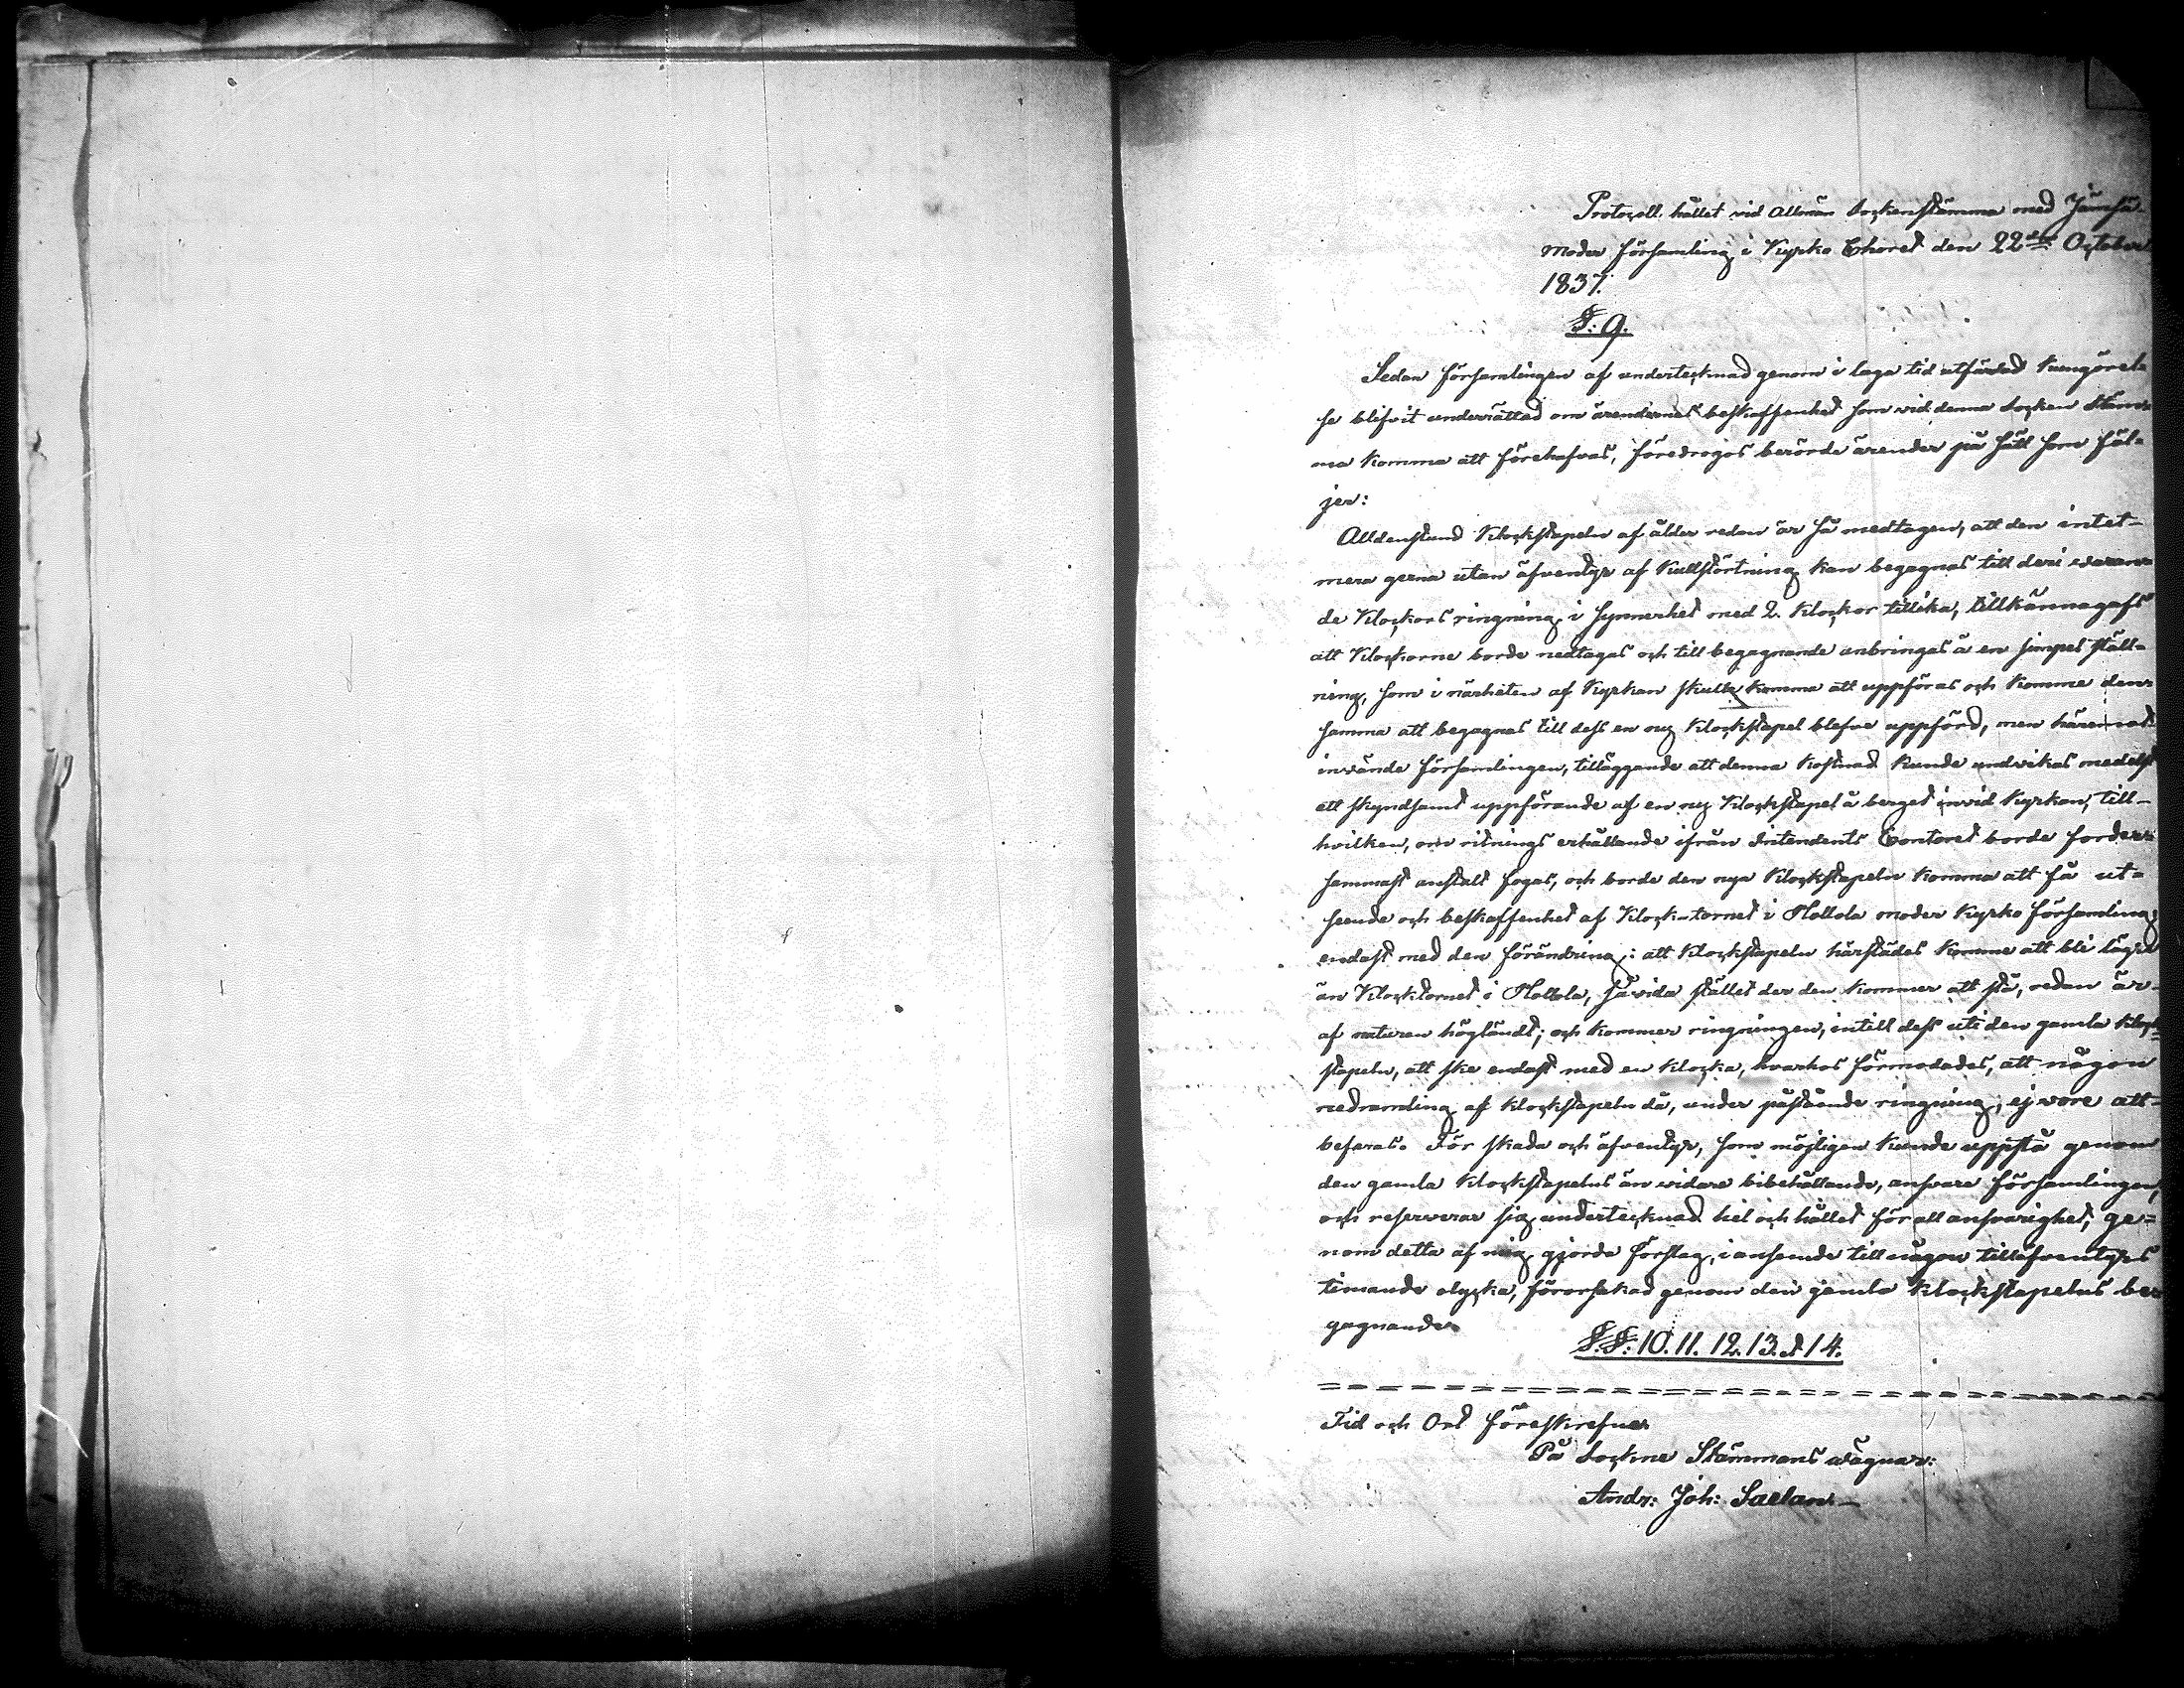 Protocoll, hållet vid Allmän Sockenstämma med Jämsä
Moder församling i Kyrko Choret den 22dra October
1837.
§: 9.
Sedan församlingen af undertecknad genom i laga tid utfärdad Kungörel-
se blifvit underrättad om ärendernes beskaffenhet som vid denna Socken Stäm-
ma komma att förehafvas, föredrogos berörde ärender på sätt som föl-
jer:
Alldenstund Klockstapeln af ålder redan är så medtagen, att den intet-
mera gerna utan äfventyr af Kullstörtning kan begagnas till deri varan-
de Klockors ringning, i synnerhet med 2. Klockor tillika, tillkännagafs
att Klockorne borde nedtagas och till begagnande anbringas å en simpel ställ-
ning, som i närheten af Kyrkan skulle komma att uppföras och komme den-
samma att begagnas till dess en ny Klockstapel blefve uppförd, men häremot
invände församlingen, tilläggande att denna kostnad kunde undvikas medelst
ett skyndsamt uppförande af en ny Klockstapel å berget invid Kyrkan, till-
hvilken, om ritnings erhållande ifrån Intendents Contoret borde forder-
sammast anstalt fogas, och borde den nya Klockstapeln komma att få ut-
seende och beskaffenhet af Klock-tornet i Hollola moder Kyrko församling
endast med den förändring: att Klockstapeln härstädes komme att bli lägre
än Klocktornet i Hollola, såvida stället der den kommer att stå, redan är
af naturen högländt; och kommer ringningen, intill dess uti den gamla Klock-
stapeln, att ske endast med en klocka, hvarhos förmodades, att någon
nedramling af klockstapeln då, under påstående ringning, ej vore att-
befaras. För skada och äfventyr, som möjligen kunde uppstå genom
den gamla Klockstapelns än vidare bibehållande, ansvare församlingen,
och reserverar sig undertecknad hel och hållet för all ansvarighet, ge-
nom detta af mig gjorda förslag, i anseende till någon tilläfventyrs
timande olycka, förorsakad genom den gamla Klockstapelns be-
gagnande.
§.§: 10. 11. 12. 13. & 14.
Tid och Ort föreskrefne
På Sockne Stämmans vägnar:
Andr: Joh: Saelan.